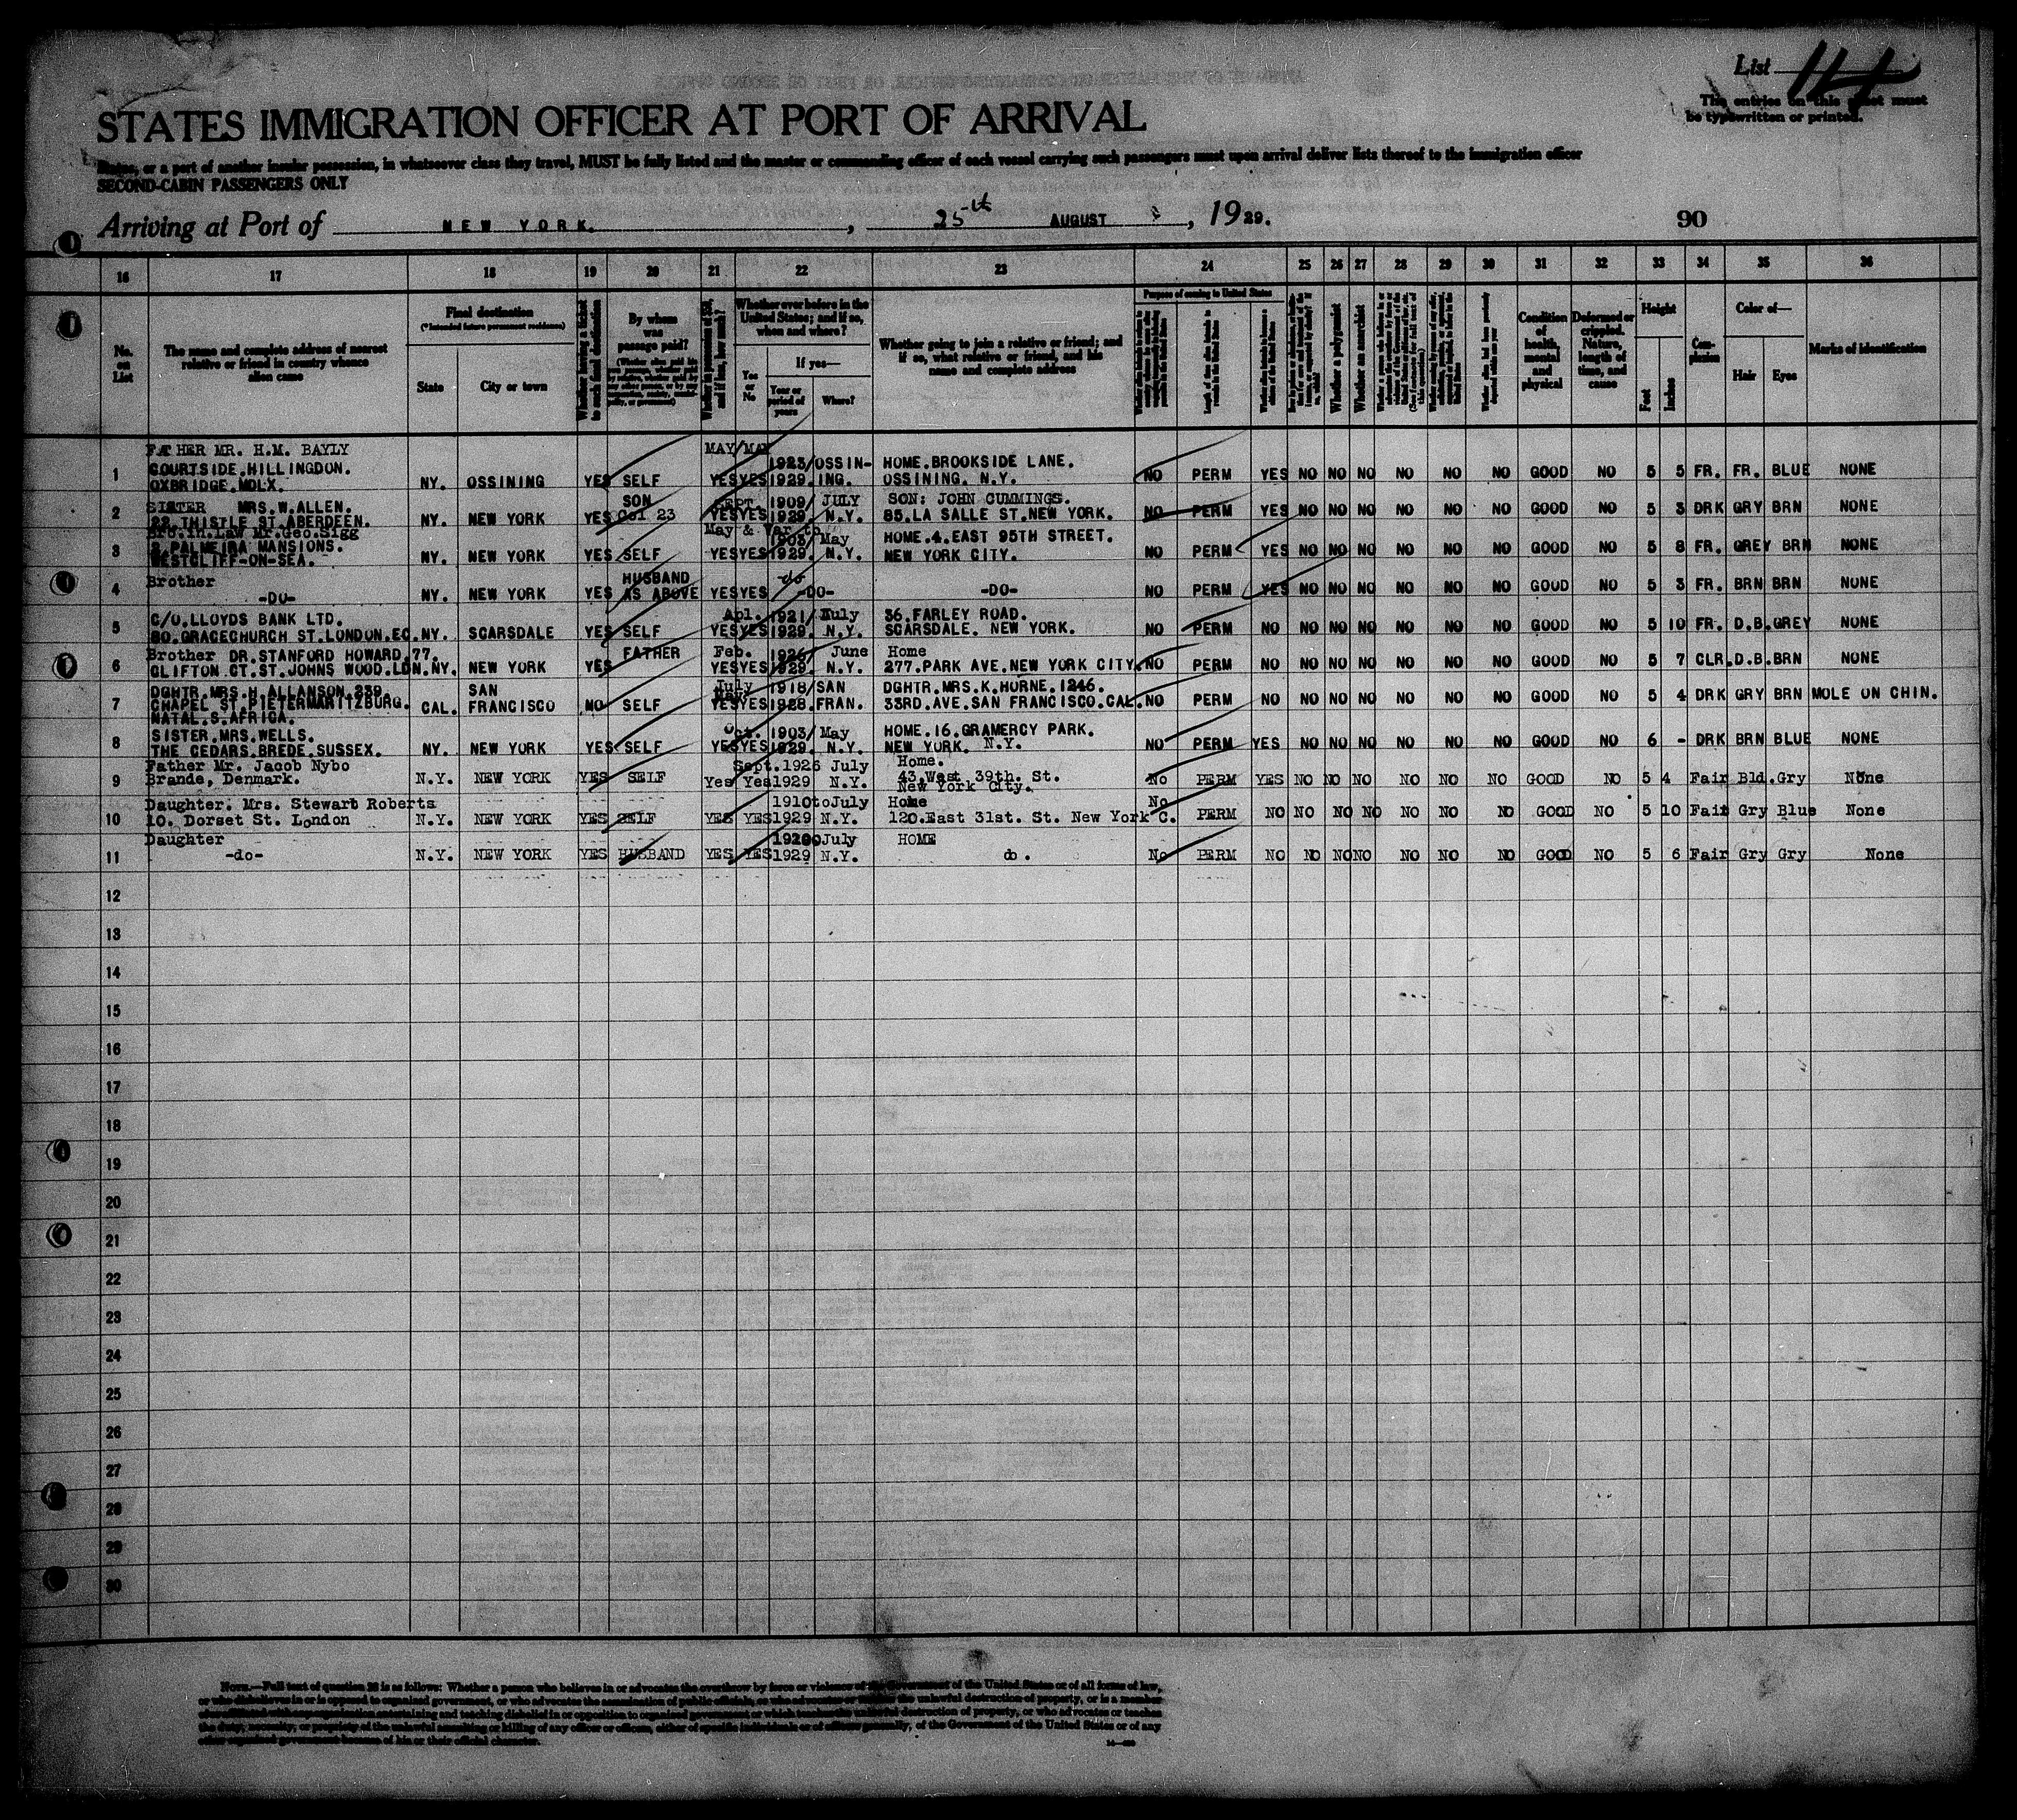 List 114
The entries on this sheet must
be typewritten or printed.
STATES IMMIGRATION OFFICER AT PORT OF ARRIVAL
States, or a part of another insular possession, in whatsoever class they travel, MUST be fully listed and the master or commanding officer of each vessel carrying such passengers must upon arrival deliver lists thereof to the immigration officer
SECOND-CABIN PASSENGERS ONLY
Arriving at Port of NEW YORK. , 25th AUGUST , 1929.
90
16 17 18 19 20 21 22 23 24 25 26 27 28 29 30 31 32 33 34 35 36
No. on List
The name and complete address of nearest relative or friend in country whence alien came
Final destination
(*Intended future permanent residence)
State
City or town
Whether having a ticket to such final destination
By whom was passage paid?
Whether ever before in the United States; and if so, when and where?
Yes or No
If yes—
Year or period of years
Where?
Whether going to join a relative or friend; and if so, what relative or friend, and his name and complete address
Purpose of coming to United States
Whether a polygamist
Whether an anarchist
Condition of health, mental and physical
Deformed or crippled. Nature, length of time, and cause
Height
Feet
Inches
Complexion
Color of—
Hair
Eyes
Marks of identification
FATHER MR. H.M. BAYLY MAY/MAY
COURTSIDE.HILLINGDON. 1923/OSSIN- HOME.BROOKSIDE LANE.
1 OXBRIDGE.MDLX. NY. OSSINING YES SELF YES YES 1929. ING. OSSINING. N.Y. NO PERM YES NO NO NO NO NO NO GOOD NO 5 5 FR. FR. BLUE NONE
SISTER MRS.W.ALLEN. SON SEPT. 1909/ JULY SON: JOHN CUMMINGS.
2 22.THISTLE ST.ABERDEEN. NY. NEW YORK YES Col 23 YES YES 1929. N.Y. 85.LA SALLE ST.NEW YORK. NO PERM YES NO NO NO NO NO NO GOOD NO 5 3 DRK GRY BRN NONE
Bro.in.Law Mr.Geo.Sigg May & Var to
PALMEIRA MANSIONS. 1903/ May HOME.4.EAST 95TH STREET.
3 WESTCLIFF-ON-SEA. NY. NEW YORK YES SELF YES YES 1929. N.Y. NEW YORK CITY. NO PERM YES NO NO NO NO NO NO GOOD NO 5 8 FR. GREY BRN NONE
Brother HUSBAND do
4 -DO- NY. NEW YORK YES AS ABOVE YES YES -DO- -DO- NO PERM YES NO NO NO NO NO NO GOOD NO 5 3 FR. BRN BRN NONE
C/O.LLOYDS BANK LTD. Apl. 1921/ July 36.FARLEY ROAD.
5 80.GRACECHURCH ST.LONDON.EC. NY. SCARSDALE YES SELF YES YES 1929. N.Y. SCARSDALE. NEW YORK. NO PERM NO NO NO NO NO NO NO GOOD NO 5 10 FR. D.B. GREY NONE
Brother DR.STANFORD HOWARD.77. FATHER Feb. 1926/ June Home
6 CLIFTON.CT.ST.JOHNS WOOD.LDN. NY. NEW YORK YES YES YES 1929. N.Y. 277.PARK AVE.NEW YORK CITY. NO PERM NO NO NO NO NO NO NO GOOD NO 5 7 CLR. D.B. BRN NONE
DGHTR.MRS.H.ALLANSON.239. SAN July 1918/SAN DGHTR.MRS.K.HORNE.1246.
7 CHAPEL ST.PIETERMARITZBURG. CAL. FRANCISCO NO SELF May YES YES 1928. FRAN. 33RD.AVE.SAN FRANCISCO.CAL. NO PERM NO NO NO NO NO NO NO GOOD NO 5 4 DRK GRY BRN MOLE ON CHIN.
NATAL.S.AFRICA.
SISTER.MRS.WELLS. Oct. 1903/ May HOME.16.GRAMERCY PARK.
8 THE CEDARS.BREDE.SUSSEX. NY. NEW YORK YES SELF YES YES 1929. N.Y. NEW YORK. N.Y. NO PERM YES NO NO NO NO NO NO GOOD NO 6 - DRK BRN BLUE NONE
Father Mr. Jacob Nybo Sept.1926 July Home.
9 Brande, Denmark. N.Y. NEW YORK YES SELF Yes Yes 1929 N.Y. 43.West 39th. St. No PERM YES NO NO NO NO NO NO GOOD NO 5 4 Fair Bld. Gry None
New York City.
Daughter. Mrs. Stewart Roberts 1910 to July Home No
10 10. Dorset St. London N.Y. NEW YORK YES SELF YES YES 1929 N.Y. 120.East 31st. St. New York C. PERM NO NO NO NO NO NO NO GOOD NO 5 10 Fair Gry Blue None
Daughter July HOME
11 -do- N.Y. NEW YORK YES HUSBAND YES YES 1929 N.Y. do. No PERM NO NO NO NO NO NO NO GOOD NO 5 6 Fair Gry Gry None
12
13
14
15
16
17
18
19
20
21
22
23
24
25
26
27
28
29
30
NOTE.—Full text of question 28 is as follows: Whether a person who believes in or advocates the overthrow by force or violence of the Government of the United States or of all forms of law,
or who disbelieves in or is opposed to organized government, or who advocates the assassination of public officials, or who advocates or teaches the unlawful destruction of property, or is a member
of or affiliated with any organization entertaining and teaching disbelief in or opposition to organized government or which teaches the unlawful destruction of property, or who advocates or teaches
the duty, necessity, or propriety of the unlawful assaulting or killing of any officer or officers, either of specific individuals or of officers generally, of the Government of the United States or of any
other organized government because of his or their official character.